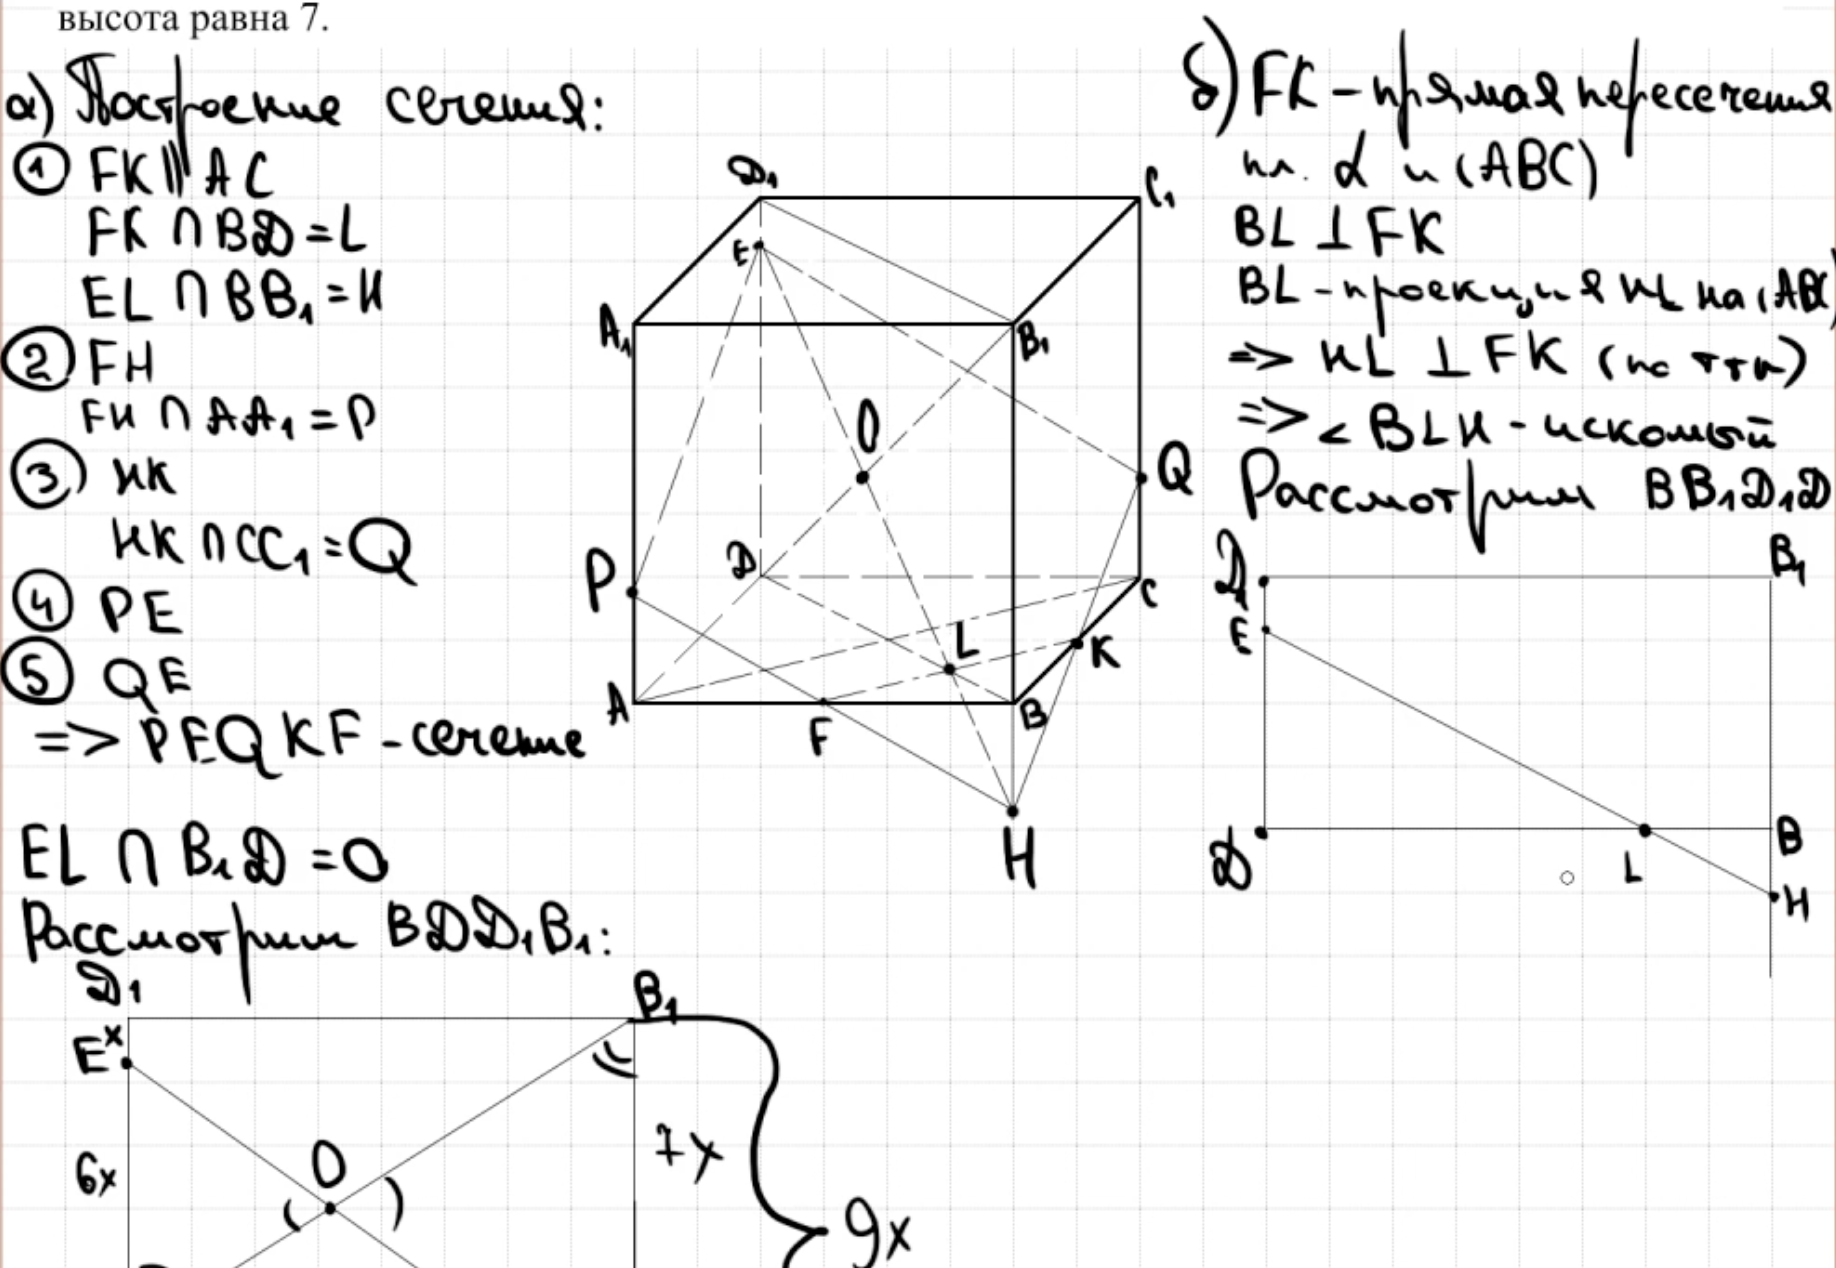 высота равна 7.
а) Построение сечения:
① FK || AC
FK ∩ BD = L
EL ∩ BB₁ = H
② FH
FH ∩ AA₁ = P
③ HK
HK ∩ CC₁ = Q
④ PE
⑤ QE
=> PEQKF - сечение
EL ∩ B₁D = O
Рассмотрим BDD₁B₁:
D₁
B₁
E
x
6x
O
7x
9x
D₁
C₁
E
A₁
B₁
O
Q
P
D
C
L
K
A
F
B
H
б) FK - прямая пересечения
пл. α и (ABC)
BL ⊥ FK
BL - проекция HL на (ABC)
=> HL ⊥ FK (по ттп)
=> ∠BLH - искомый
Рассмотрим BB₁D₁D
D₁
B₁
E
D
L
B
H